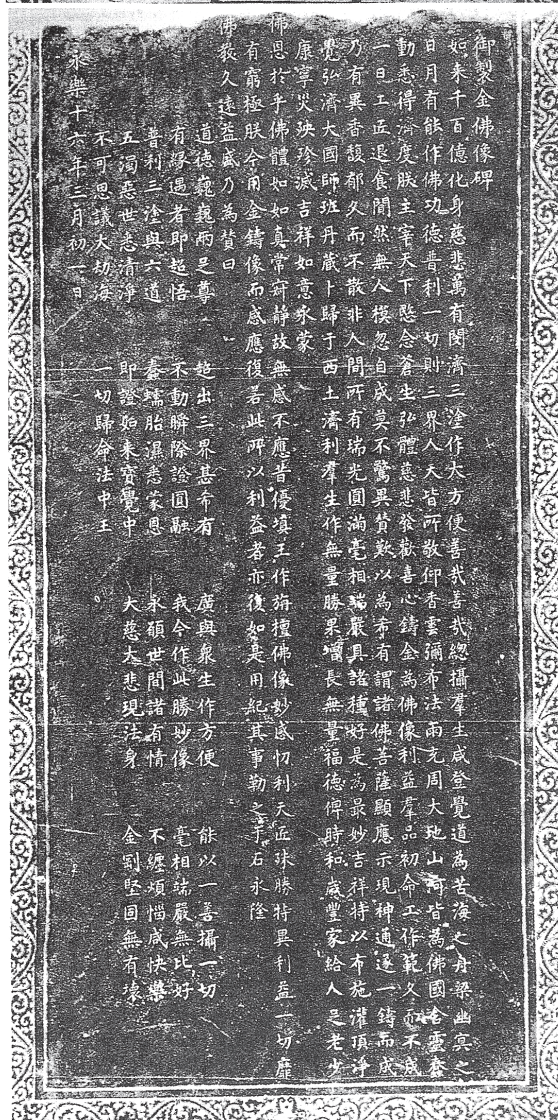 御製金佛像碑
如来千百億化身慈悲萬有閔濟三塗作大方便善哉善哉總攝羣生咸登覺道為苦海之舟梁幽冥之
日月有能作佛功德普利一切則三界人天皆所敬仰香雲彌布法雨充周大地山河皆為佛國含靈蠢
動悉得濟度朕主宰天下愍念蒼生弘體慈悲發歡喜心鑄金為佛像利益羣品初命工作範久而不成
一日工匠退食閴然無人模忽自成莫不驚異贊歎以為希有謂諸佛菩薩顯應示現神通遂一鑄而成
乃有異香馥郁久而不散非人間所有瑞光圓滿毫相端嚴具諸種好是為最妙吉祥特以布施灌頂淨
覺弘濟大國師班丹藏卜歸于西土濟利羣生作無量勝果增長無量福德俾時和歲豐家給人足老少
康寧災殃殄滅吉祥如意永蒙
佛恩於乎佛體如如真常寂静故無感不應昔優填王作旃檀佛像妙感忉利天匠殊勝特異利益一切靡
有窮極朕今用金鑄像而感應復若此所以利益者亦復如是用紀其事勒之于石永隆
佛教久遠益盛乃為贊曰
道德巍巍兩足尊 超出三界甚希有 廣與衆生作方便 能以一善攝一切
有緣遇者即超悟 不動瞬際證圓融 我今作此勝妙像 毫相端嚴無比好
普利三塗與六道 蠢蠕胎濕悉蒙恩 永願世間諸有情 不纏煩惱咸快樂
五濁惡世悉清淨 即證如来寳覺中 大慈大悲現法身 金剛堅固無有壊
不可思議大劫海 一切歸命法中王
永樂十六年三月初一日